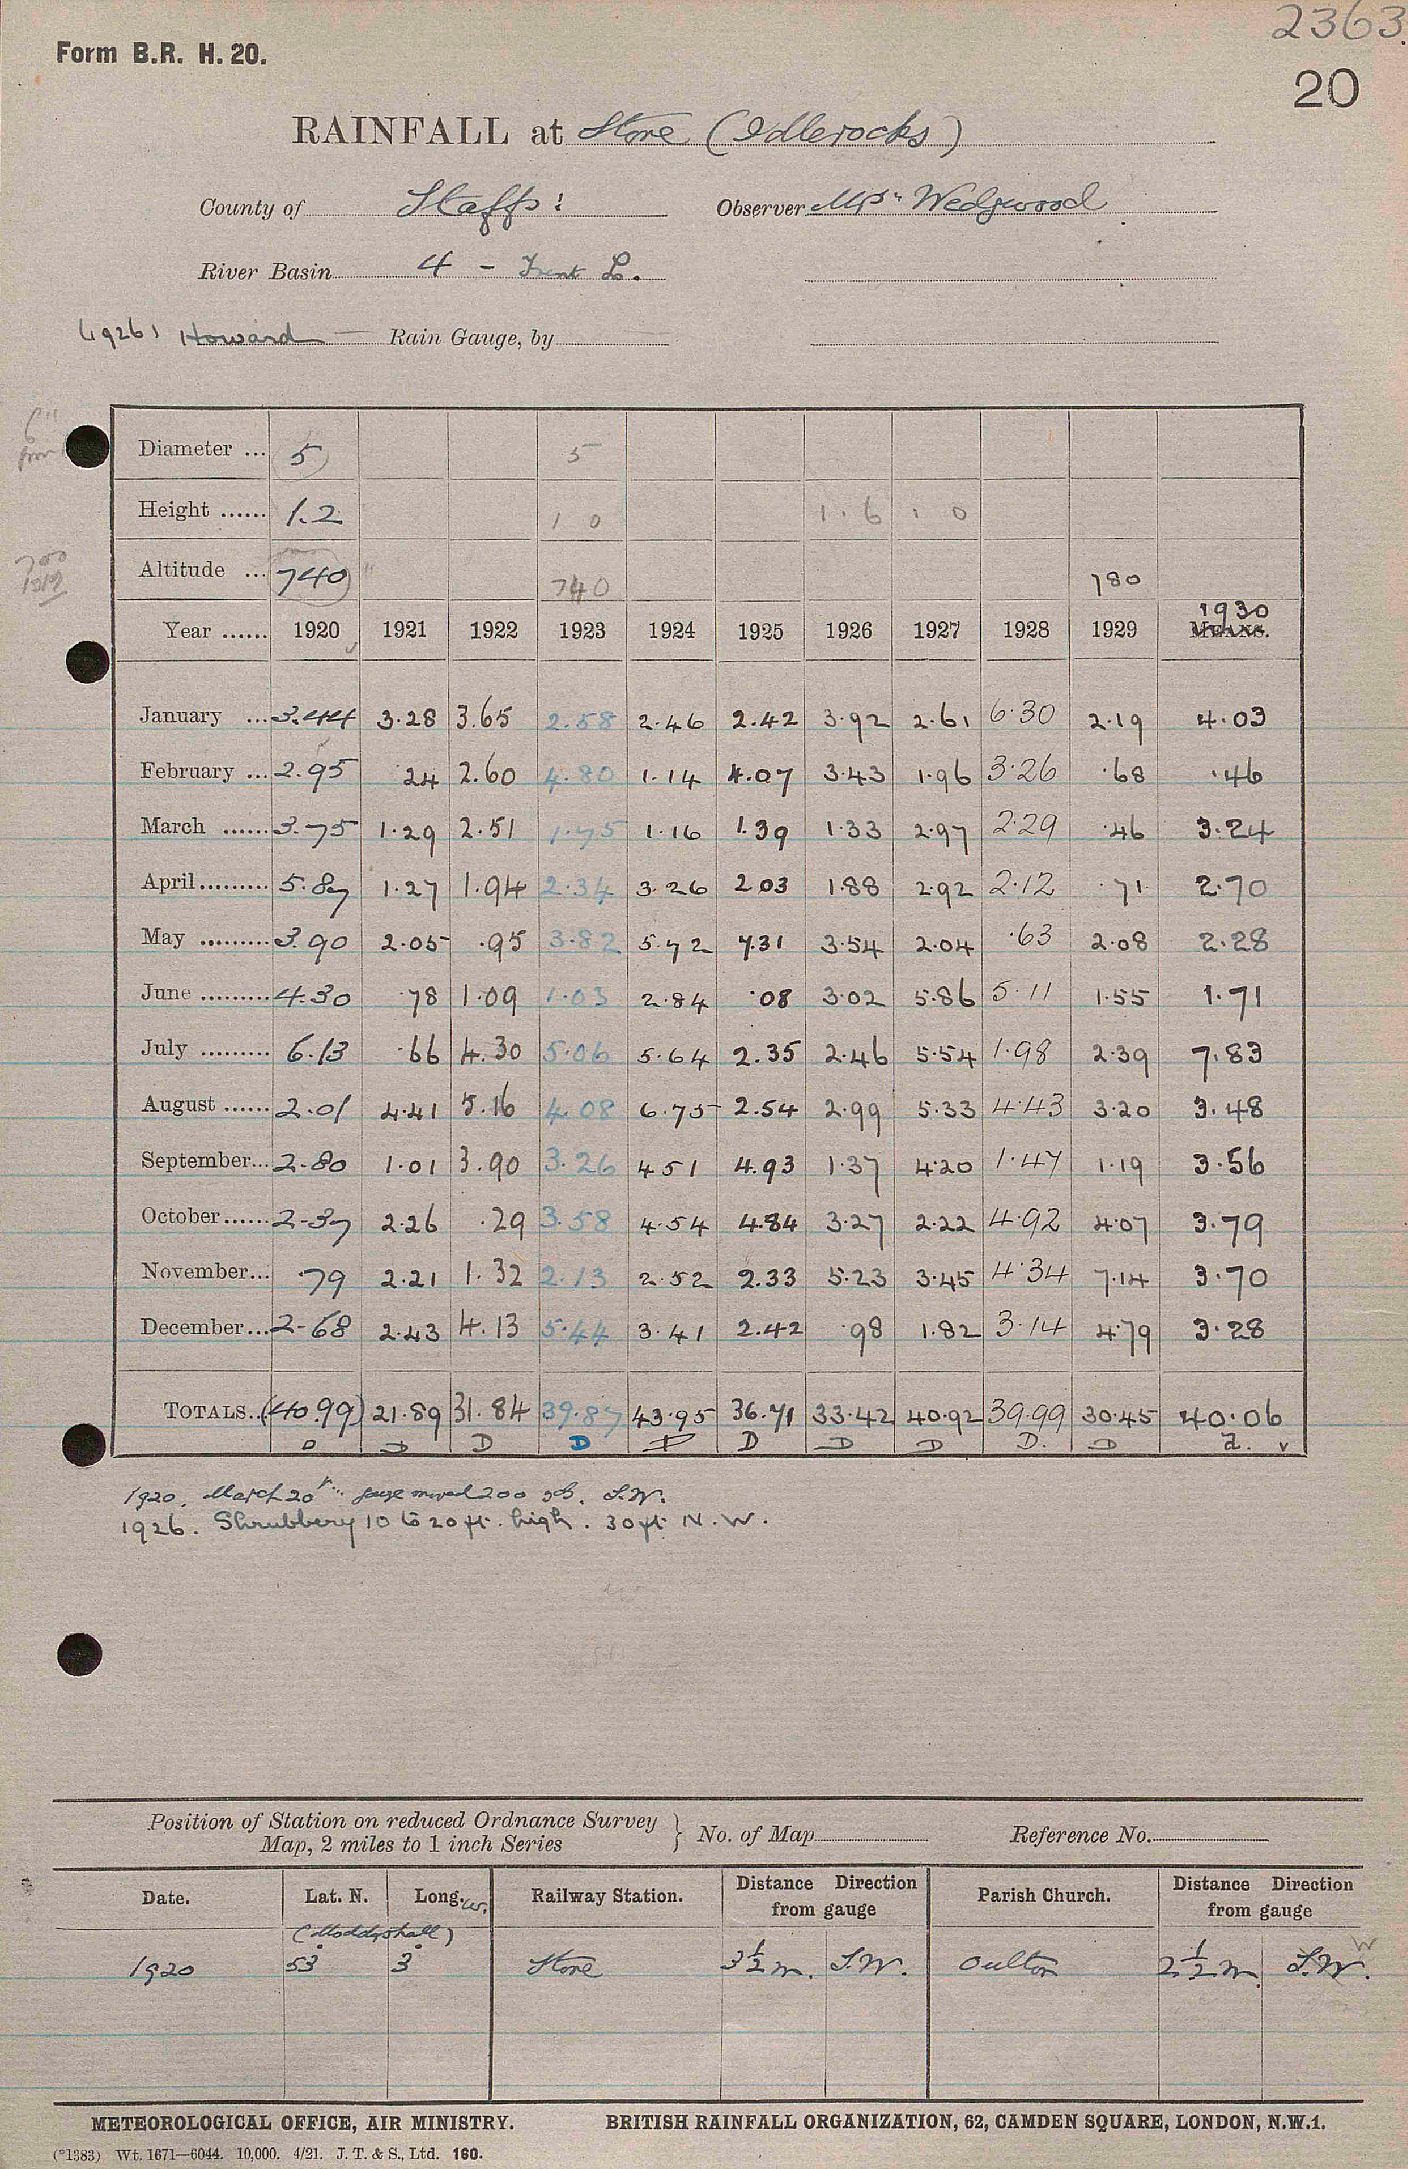 2363.
20
Form B.R. H. 20.
RAINFALL at Stone (Idlerocks)
County of Staffs: Observer Mrs. Wedgwood
River Basin 4 - Trent L.
(1926) Howard — Rain Gauge, by
6"
from
Diameter ... 5 5
Height ...... 1.2 1 0 1 . 6 : 0
700
Altitude ... 740 " 740 780
1930
Year ...... 1920 1921 1922 1923 1924 1925 1926 1927 1928 1929 MEANS.
January ... 3.44 3.28 3.65 2.58 2.46 2.42 3.92 2.61 6.30 2.19 4.03
February ... 2.95 .24 2.60 4.80 1.14 4.07 3.43 1.96 3.26 .68 .46
March ...... 3.75 1.29 2.51 1.75 1.16 1.39 1.33 2.97 2.29 .46 3.24
April ......... 5.87 1.27 1.94 2.34 3.26 2.03 1.88 2.92 2.12 .71 2.70
May ......... 3.90 2.05 .95 3.82 5.72 7.31 3.54 2.04 .63 2.08 2.28
June ......... 4.30 .78 1.09 1.03 2.84 .08 3.02 5.86 5.11 1.55 1.71
July ......... 6.13 .66 4.30 5.06 5.64 2.35 2.46 5.54 1.98 2.39 7.83
August ...... 2.01 4.41 5.16 4.08 6.75 2.54 2.99 5.33 4.43 3.20 3.48
September... 2.80 1.01 3.90 3.26 4.51 4.93 1.37 4.20 1.47 1.19 3.56
October...... 2.37 2.26 .29 3.58 4.54 4.84 3.27 2.22 4.92 4.07 3.79
November... .79 2.21 1.32 2.13 2.52 2.33 5.23 3.45 4.34 7.14 3.70
December... 2.68 2.43 4.13 5.44 3.41 2.42 .98 1.82 3.14 4.79 3.28
TOTALS.. (40.99) 21.89 31.84 39.87 43.95 36.71 33.42 40.92 39.99 30.45 40.06
D D D D D D D D D. D
1920. March 20th gauge moved 200 yds. S.W.
1926. Shrubbery 10 to 20 ft. high. 30 ft N.W.
Position of Station on reduced Ordnance Survey
Map, 2 miles to 1 inch Series } No. of Map Reference No.
Date. Lat. N. Long. W. Railway Station. Distance Direction from gauge Parish Church. Distance Direction from gauge
(Moddershall)
1920 53° 3° Stone 3½ m. S.W. Oulton 2½ m. S.W. W
METEOROLOGICAL OFFICE, AIR MINISTRY. BRITISH RAINFALL ORGANIZATION, 62, CAMDEN SQUARE, LONDON, N.W.1.
(*1383) Wt. 1671—6044. 10,000. 4/21. J. T. & S., Ltd. 160.